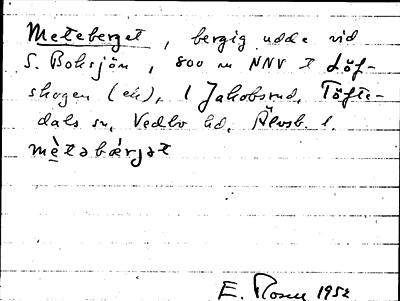 Meteberget, bergig udde vid
S. Boksjön, 800 m NNV Löf-
skogen (ek), 1 Jakobsrud, Töfte-
dals sn, Vedbo hd, Älvsb. l.
mètabǽrjat
E. Rosen 1952